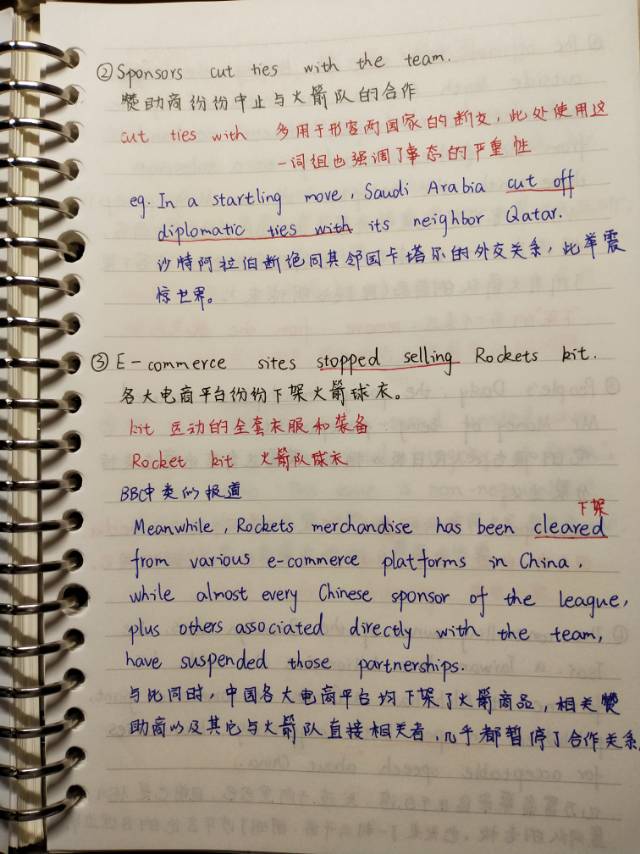 ② Sponsors cut ties with the team.
赞助商份份中止与火箭队的合作
cut ties with 多用于形容两国家的断交，此处使用这
一词组也强调了事态的严重性
eg. In a startling move, Saudi Arabia cut off
diplomatic ties with its neighbor Qatar.
沙特阿拉伯断绝同其邻国卡塔尔的外交关系，此举震
惊世界。
③ E-commerce sites stopped selling Rockets kit.
各大电商平台份份下架火箭球衣。
kit 运动的全套衣服和装备
Rocket kit 火箭队球衣
BBC中类似报道
下架
Meanwhile, Rockets merchandise has been cleared
from various e-commerce platforms in China,
while almost every Chinese sponsor of the league,
plus others associated directly with the team,
have suspended those partnerships.
与此同时，中国各大电商平台均下架了火箭商品，相关赞
助商以及其它与火箭队直接相关者，几乎都暂停了合作关系